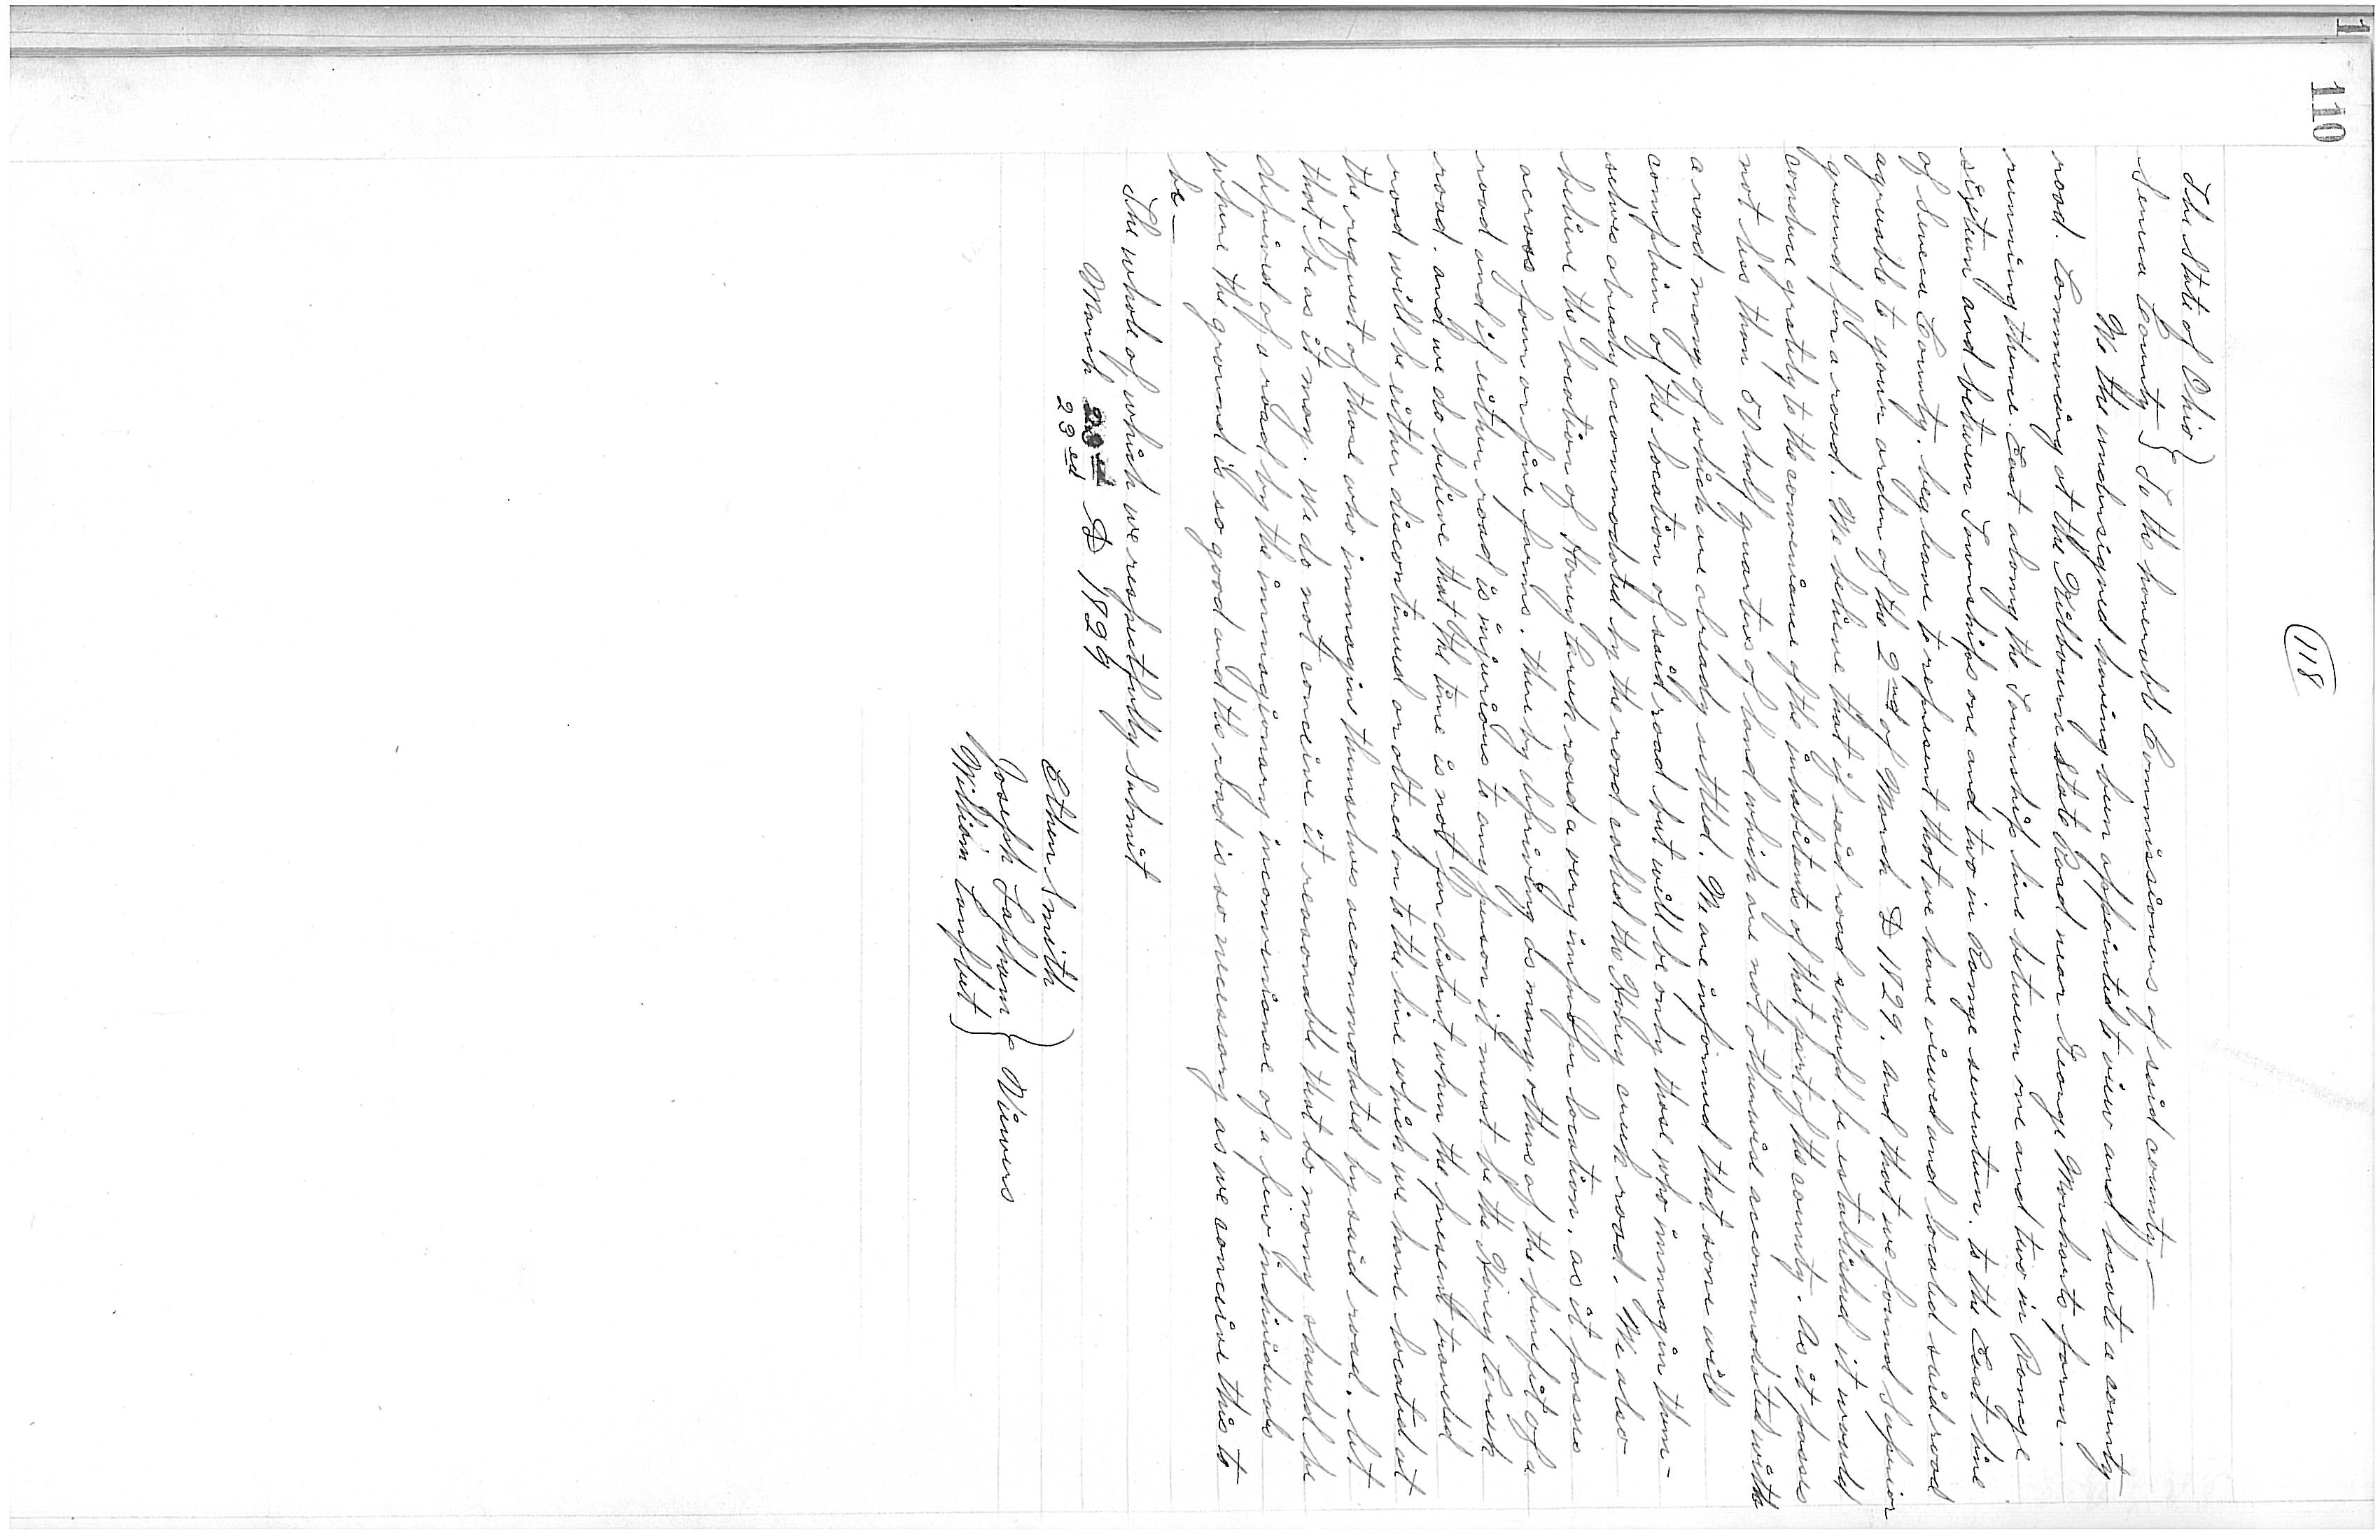 110
118
The State of Ohio }
Seneca County } To the honerable Commissioners of said county—
We the undersigned having been appointed to view and locate a county
road. Commencing at the Kilbourn State Road near George Moreharts farm.
running thence East along the Township line between one and two in Range
sixteen and between Townships one and two in Range seventeen. to the East line
of Seneca County. beg leave to represent that we have viewed and located said road
agreable to your order of the 2nd of March AD 1829. and that we found Superior
ground for a road. We believe that if said road should be established it would
conduce greatly to the convenience of the inhabitants of that part of the county. As it passes
not less than 50 half quarters of land which are not otherwise accommodated with
a road many of which are already settled. We are informed that some will
complain of the location of said road but will be only those who immagin them-
selves already accommodated by the road called the Honey creek road. We also
believe the location of Honey Creek road a very improper location. as it passes
across four or five farms. thereby depriving as many others of the benefit of a
road and if either road is injurious to any person it must be the Honey Creek
road. and we do believe that the time is not far distant when the present traveled
road will be either discontinued or altered on to the line which we have located at
the request of those who immagine themselves accommodated by said road. let
that be as it may. We do not conceive it reasonable that so many should be
deprived of a road by the immagionary inconvenience of a few individuals
where the ground is so good and the road is so necessary as we conceive this to
be—
The whole of which we respectfully Submit
March 23rd AD 1829
23rd
Ether Smith }
Joseph Lapham } Viewers
William Confut }